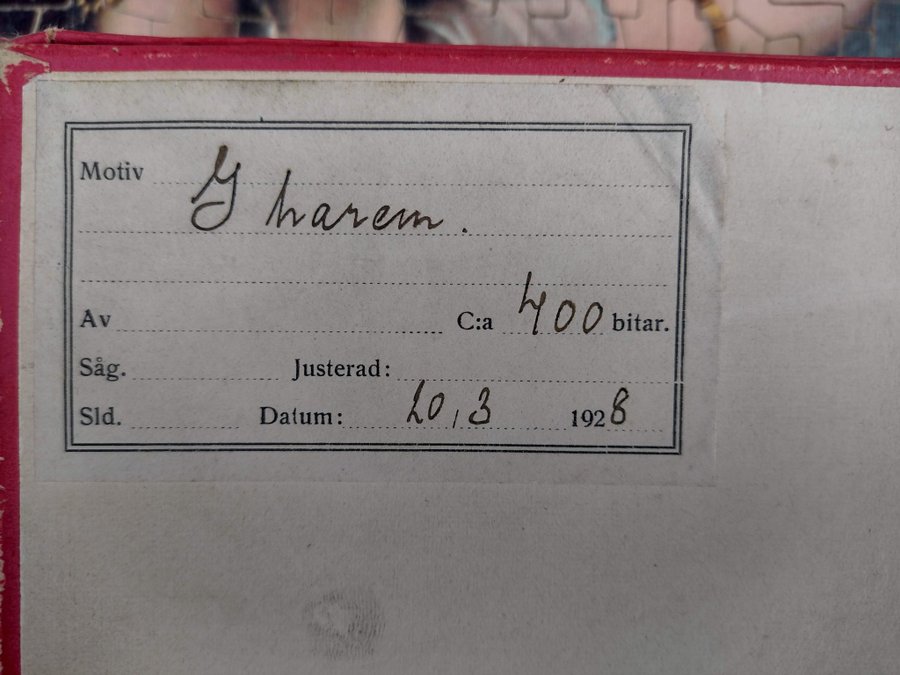 Motiv I harem.
Av C:a 400 bitar.
Såg. Justerad:
Sld. Datum: 20,3 1928